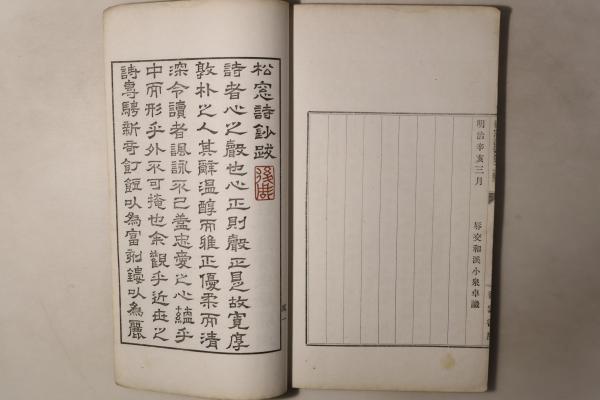 明治辛亥三月
辱交和溪小泉卓識
松窓詩鈔跋
詩者心之聲也心正則聲正是故寬厚
敦朴之人其辭温醇而雅正優柔而清
深令讀者諷詠不已蓋忠愛之心蘊乎
中而形乎外不可掩也余觀乎近世之
詩專騁新奇飣餖以為富剡鏤以為麗
跋一